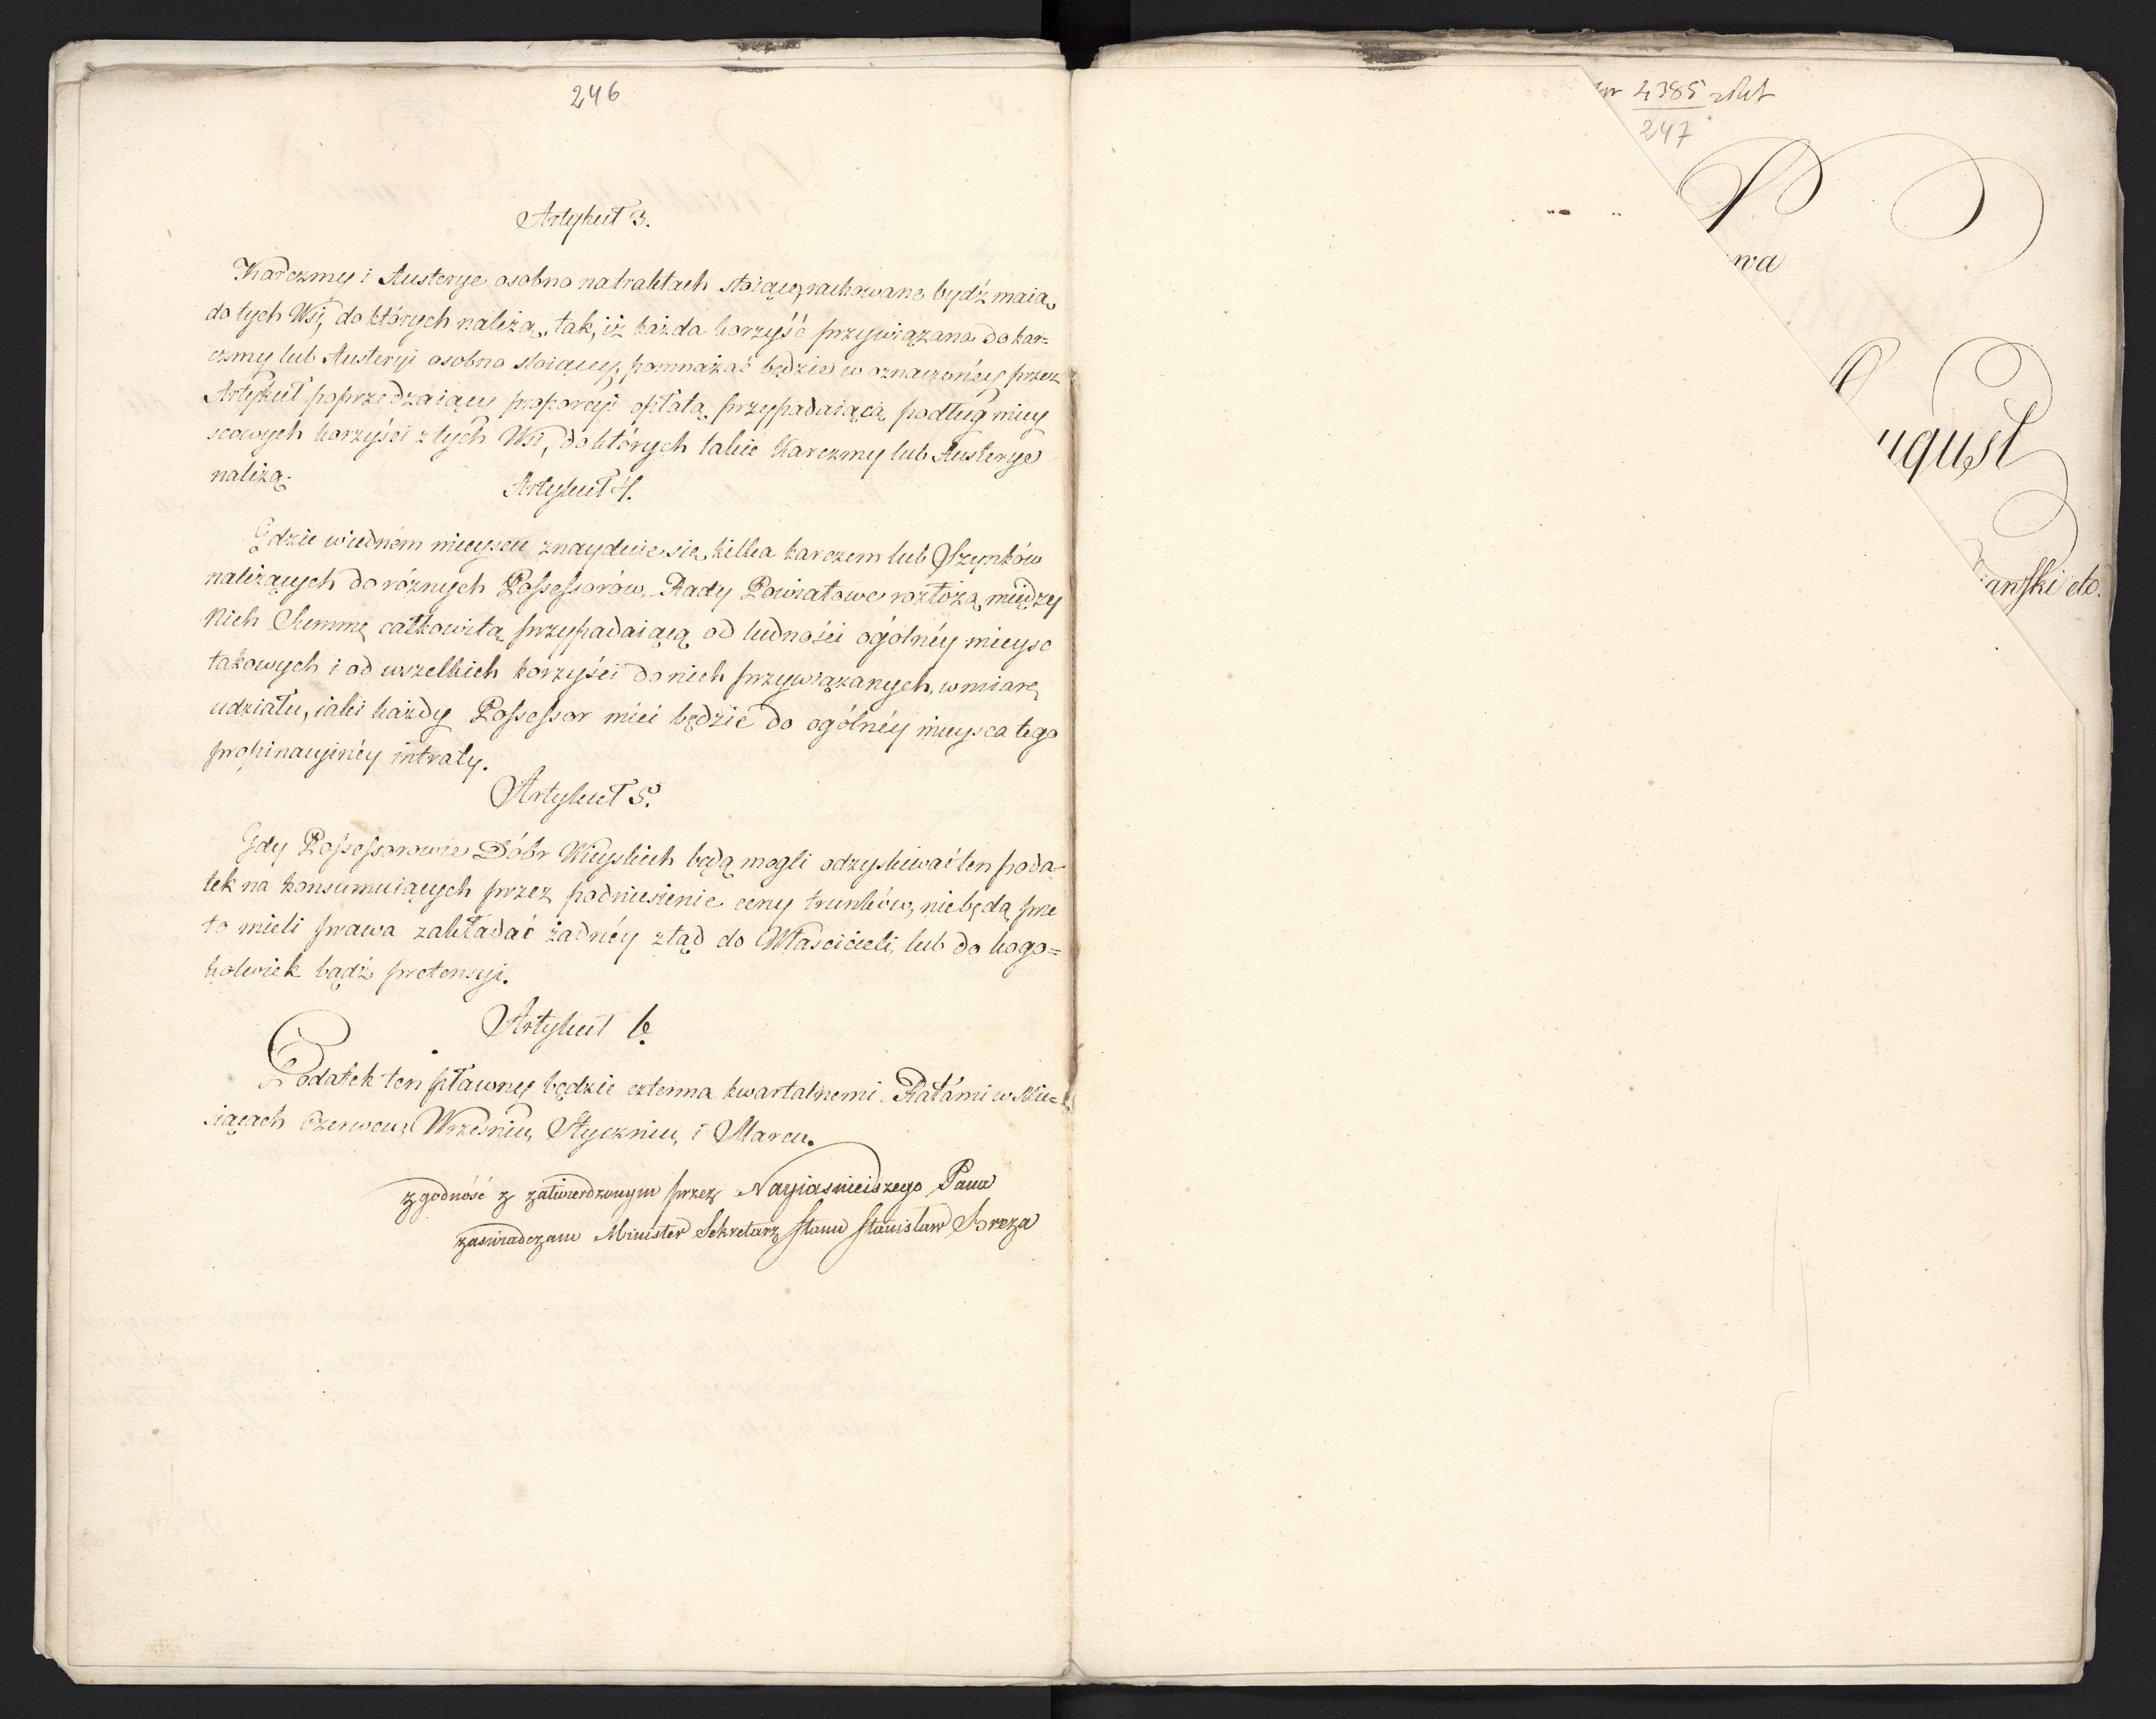 246
Artykuł 3.
Karczmy i Austerye osobno na traktach stoiące, rachowane bydź maią
do tych Wsi, do których należą, tak, iż każda korzyść przywiązana do kar=
czmy lub Austeryi osobno stoiącey, pomnażać będzie w oznaczonéy przez
Artykuł poprzedzaiący proporcyi opłatą przypadaiącą podług miey
scowych korzyści z tych Wsi, do których takie Karczmy lub Austerye
należą.
Artykuł 4.
Gdzie w iednem mieyscu znayduie się kilka karczem lub Szynków
należących do różnych Possessorów, Rady Powiatowe rozłożą między
Nich Summę całkowitą przypadaiącą od ludności ogólnéy mieysc
takowych i od wszelkich korzyści do nich przywiązanych, w miarę
udziału, iaki każdy Possessor mieć będzie do ogólnéy mieysca tego
propinacyinéy intraty.
Artykuł 5.
Gdy Possessorowie Dóbr Wieyskich będą mogli odzyskiwać ten poda-
tek na konsumuiących przez podniesienie ceny trunków, nie będą prze
to mieli prawa zakładać żadnéy ztąd do Właścicieli, lub do kogo=
kolwiek bądź pretensyi.
Artykuł 6.
Podatek ten pławny będzie czterma kwartalnemi Ratami w Mie=
siącach Czerwcu, Wrześniu, Styczniu, i Marcu.
zgodność z zatwierdzonym przez Nayiasnieiszego Pana
zaswiadczam Minister Sekretarz Stanu Stanisław Breza
4385
247
wa
ugust
anski etc.